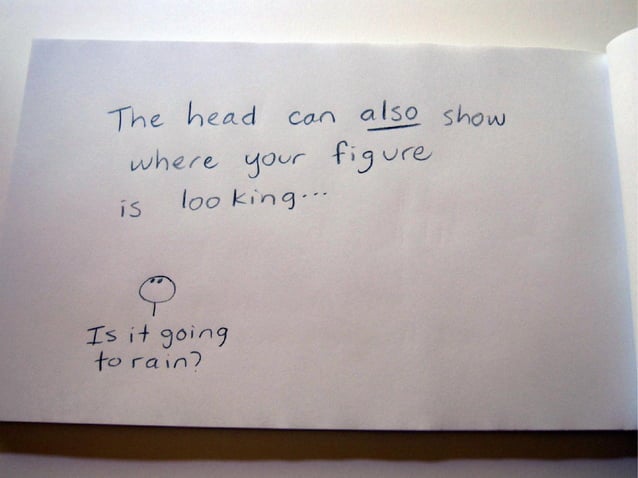 The head can also show
where your figure
is looking...
Is it going
to rain?